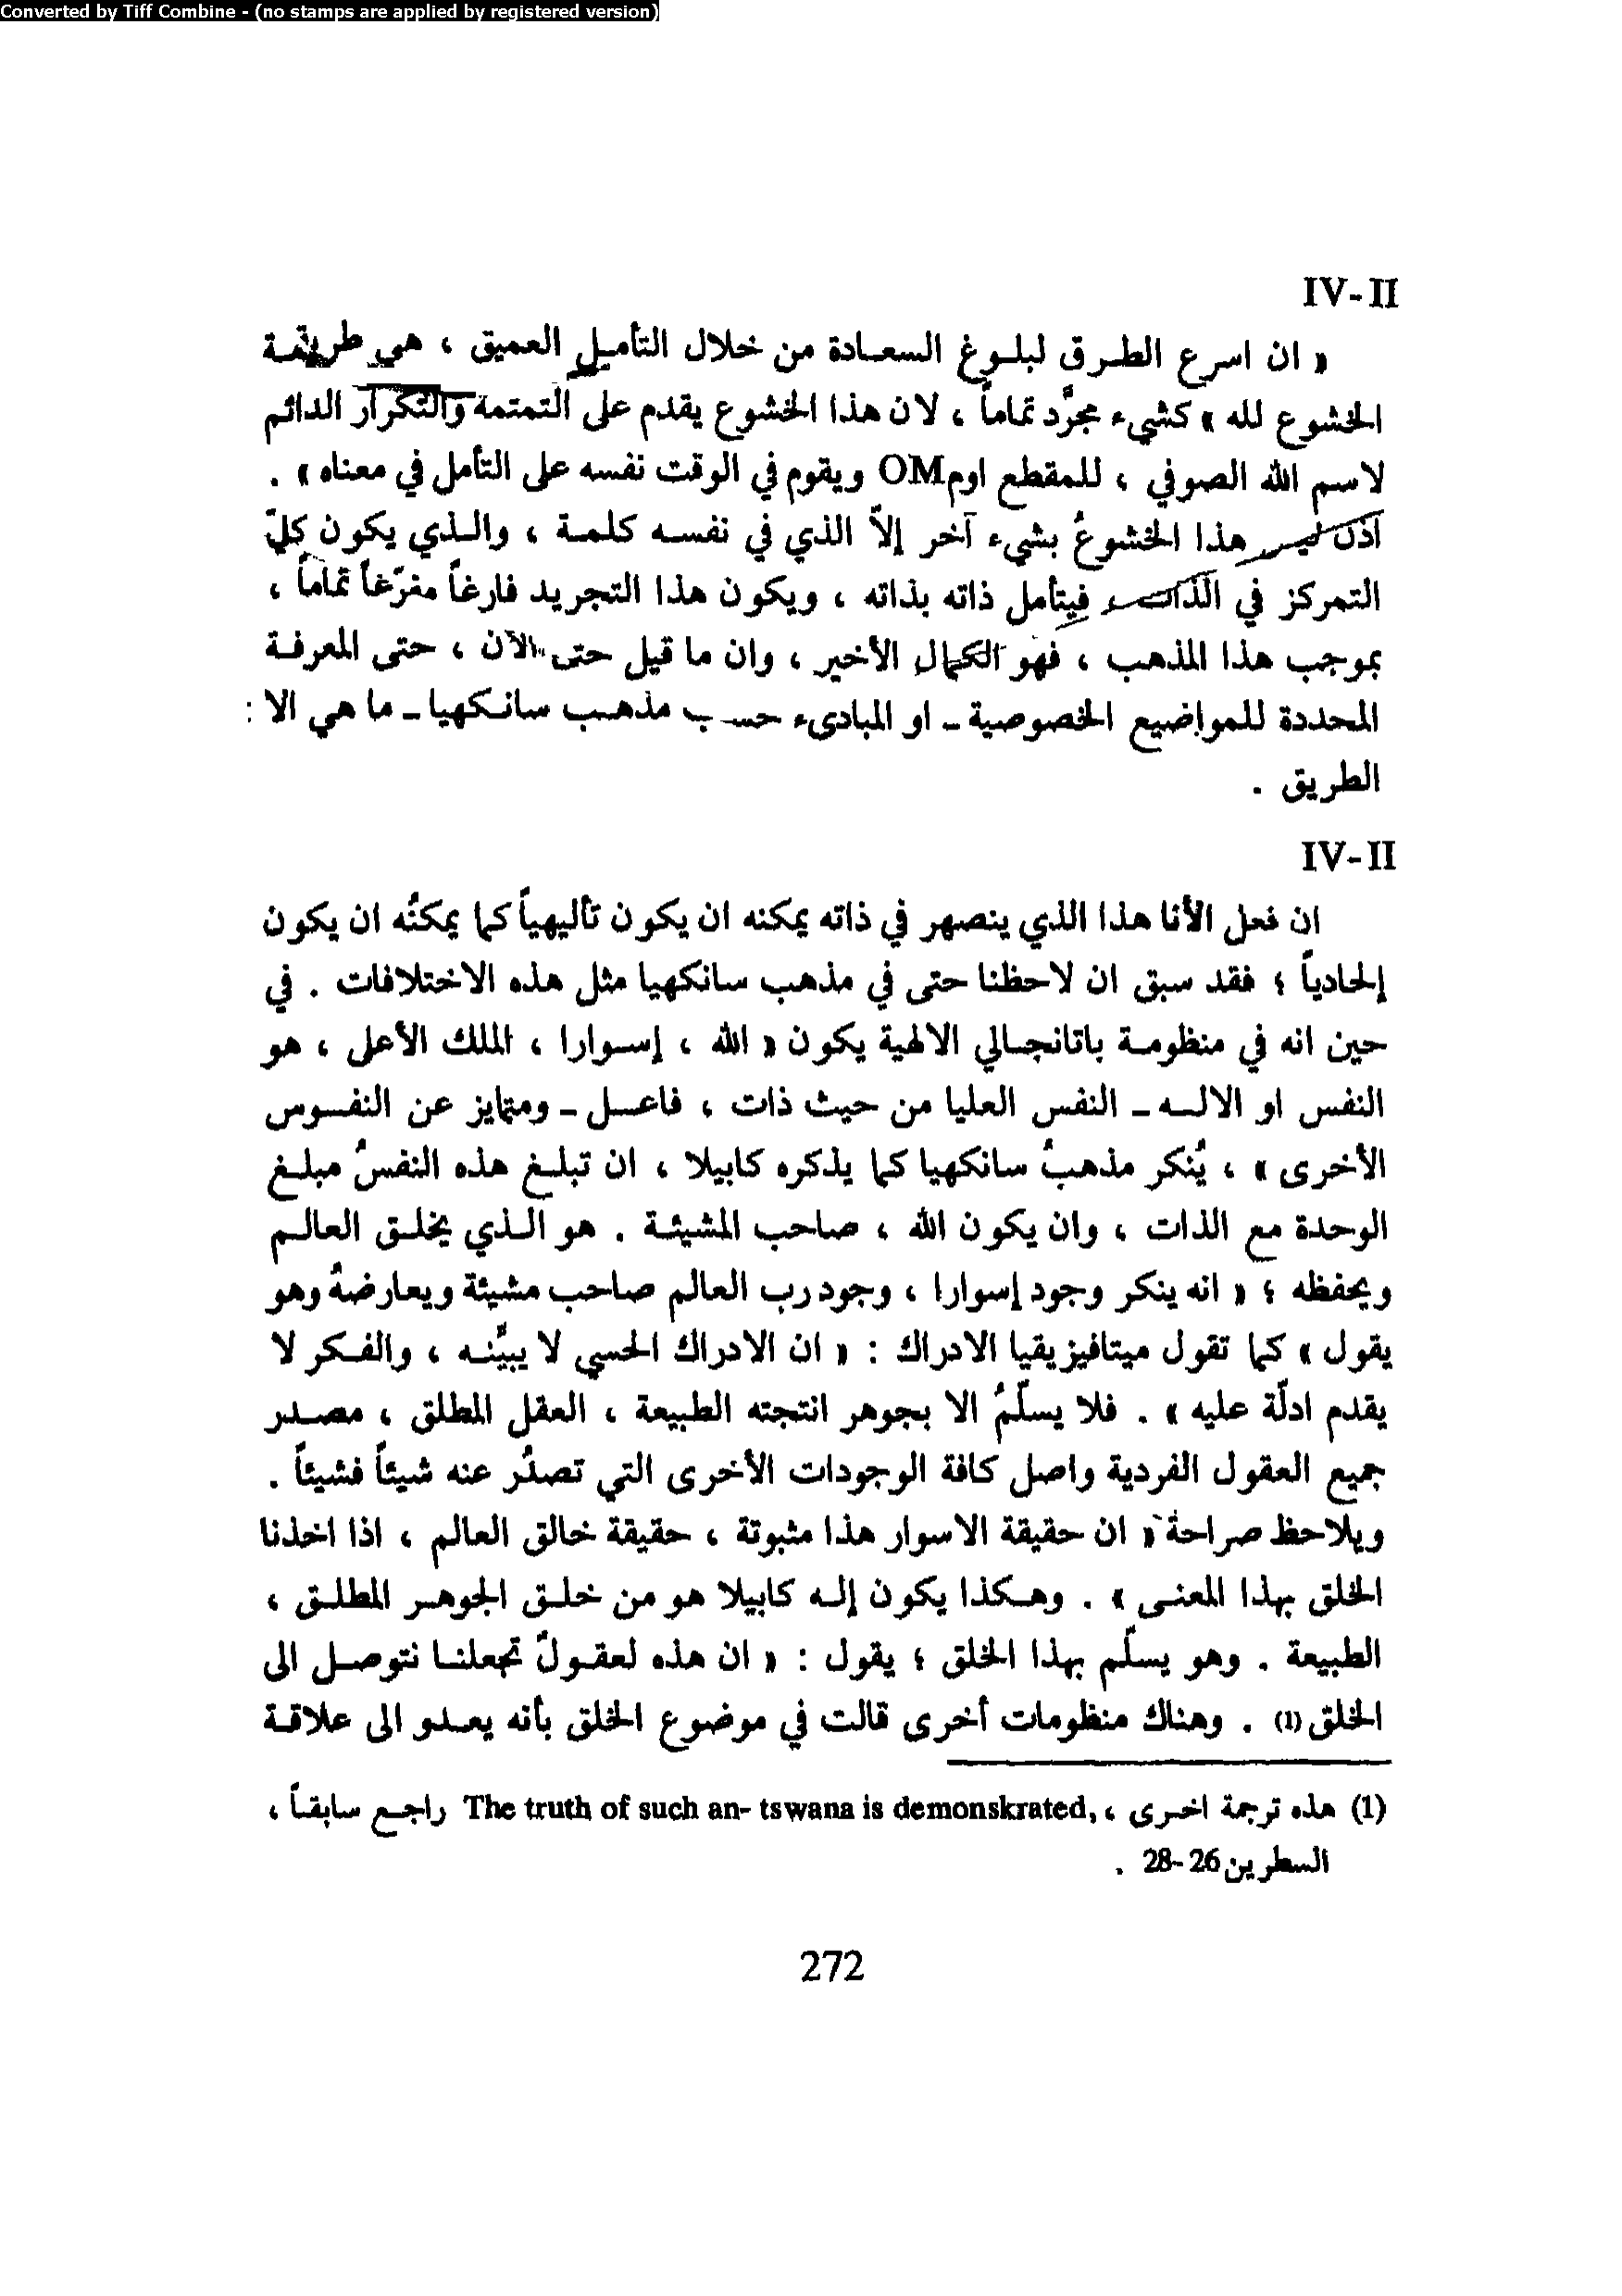 Converted by Tiff Combine - (no stamps are applied by registered version)
IV-II
« ان اسرع الطرق لبلوغ السعادة من خلال التأميل العميق ، هي طريقة
الخشوع لله » كشيء مجرَّد تماماً ، لان هذا الخشوع يقدم على التمتمة والتكرار الدائم
لاسم الله الصوفي ، للمقطع اوم OM ويقوم في الوقت نفسه على التأمل في معناه » .
اذن ليس هذا الخشوعُ بشيء آخر إلاّ الذي في نفسه كلمة ، والذي يكون كلّ
التمركز في الذات فيتأمل ذاته بذاته ، ويكون هذا التجريد فارغاً مفرّغاً تماماً ،
بموجب هذا المذهب ، فهو الكمال الأخير ، وان ما قيل حتى الآن ، حتى المعرفة
المحددة للمواضيع الخصوصية - او المبادىء حسب مذهب سانكهيا - ما هي الا :
الطريق .
IV-II
ان فعل الأنا هذا الذي ينصهر في ذاته يمكنه ان يكون تأليهياً كما يمكنُه ان يكون
إلحادياً ؛ فقد سبق ان لاحظنا حتى في مذهب سانكهيا مثل هذه الاختلافات . في
حين انه في منظومة باتانجالي الالهية يكون « الله ، إسوارا ، الملك الأعلى ، هو
النفس او الاله - النفس العليا من حيث ذات ، فاعل - ومتمايز عن النفوس
الأخرى » ، يُنكر مذهبُ سانكهيا كما يذكره كابيلا ، ان تبلغ هذه النفسُ مبلغ
الوحدة مع الذات ، وان يكون الله ، صاحب المشيئة . هو الذي يخلق العالم
ويحفظه ؛ « انه ينكر وجود إسوارا ، وجود رب العالم صاحب مشيئة ويعارضهُ وهو
يقول » كما تقول ميتافيزيقيا الادراك : « ان الادراك الحسي لا يبيَّنه ، والفكر لا
يقدم ادلّة عليه » . فلا يسلّمُ الا بجوهر انتجته الطبيعة ، العقل المطلق ، مصدر
جميع العقول الفردية واصل كافة الوجودات الأخرى التي تصدُر عنه شيئاً فشيئاً .
ويلاحظ صراحةً « ان حقيقة الاسوار هذا مثبوتة ، حقيقة خالق العالم ، اذا اخذنا
الخلق بهذا المعنى » . وهكذا يكون إله كابيلا هو من خلق الجوهر المطلق ،
الطبيعة . وهو يسلّم بهذا الخلق ؛ يقول : « ان هذه لعقولٌ تجعلنا نتوصل الى
الخلق (1) . وهناك منظومات أخرى قالت في موضوع الخلق بأنه يعدو الى علاقة
(1) هذه ترجمة اخرى ، The truth of such an- tswana is demonskrated, راجع سابقاً ،
السطرين 26-28 .
272